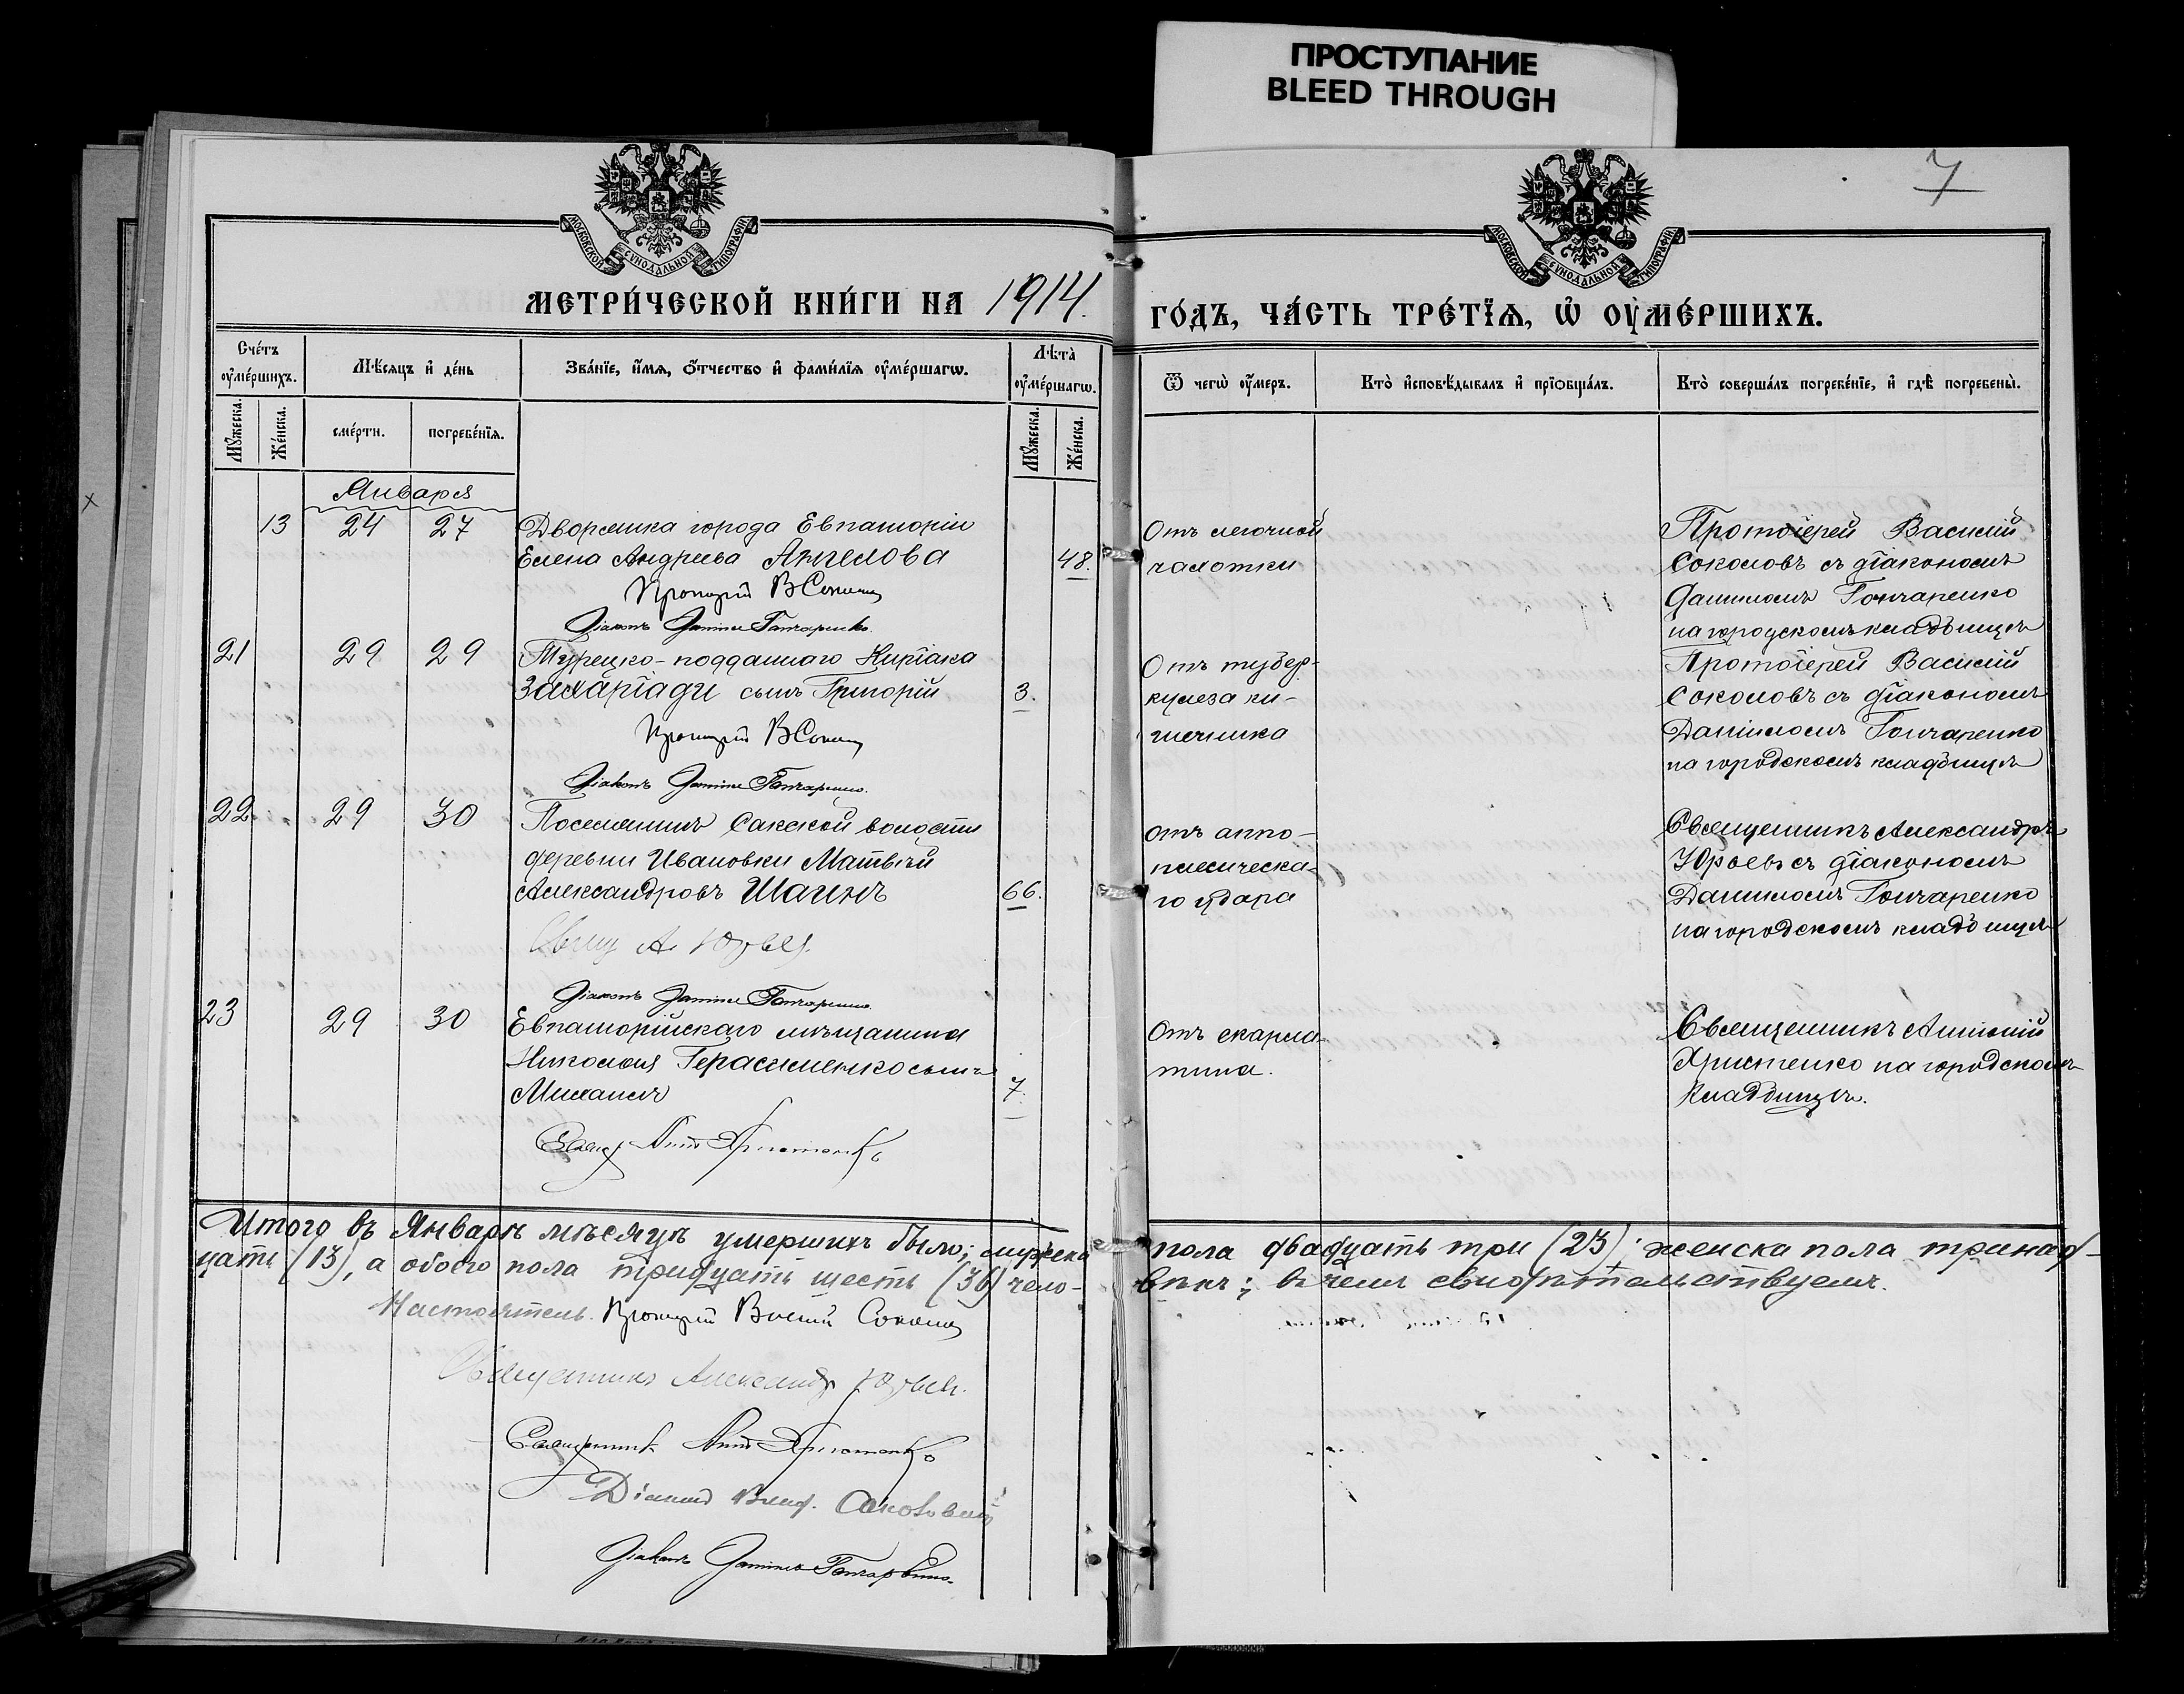 ПРОСТУПАНИЕ
BLEED THROUGH
7
МОСКОВСКОЙ СѴНОДАЛЬНОЙ ТИПОГРАФІИ
МОСКОВСКОЙ СѴНОДАЛЬНОЙ ТИПОГРАФІИ
МЕТРИ́ЧЕСКОЙ КНИ́ГИ НА 1914. ГО́ДЪ, ЧА́СТЬ ТРЕ́ТЇѦ, Ѽ ОУ҆МЕ́РШИХЪ.
Сче́тъ оу҆ме́ршихъ.
Мѣ́сѧцъ и҆ де́нь
Зва́нїе, и҆́мѧ, ѻ҆́тчество и҆ фами́лїѧ оу҆ме́ршагѡ.
Лѣта̀ оу҆ме́ршагѡ.
Ѿ чегѡ̀ оу҆́меръ.
Кто̀ и҆сповѣ́дывалъ и҆ прїѡбща́лъ.
Кто̀ соверша́лъ погребе́нїе, и҆ гдѣ̀ погребены̀.
Мꙋ́жеска. Же́нска. сме́рти. погребе́нїѧ. Мꙋ́жеска. Же́нска.
Января
13 24 27 Дворянка города Евпаторіи
Елена Андреева Ангелова 48.
Протоіерей В Соколовъ
Діаконъ Даніилъ Гончаренко.
Отъ легочной
чахотки
Протоіерей Василій
Соколовъ съ діакономъ
Данииломъ Гончаренко
на городскомъ кладбищѣ
21 29 29 Турецко-подданнаго Киріака
Захаріади сынъ Григорій 3.
Протоіерей В Соколовъ
Діаконъ Даніилъ Гончаренко.
Отъ тубер-
кулеза ки-
шечника
Протоіерей Василій
Соколовъ съ діакономъ
Даніиломъ Гончаренко
на городскомъ кладбищѣ
22 29 30 Поселянинъ Сакской волости
деревни Ивановки Матвѣй
Александровъ Шагинъ 66.
Свящ А. Юрьевъ.
Діаконъ Даніилъ Гончаренко.
отъ аппо-
плексическа-
го удара
Священникъ Александръ
Юрьевъ съ діакономъ
Данииломъ Гончаренко
на городскомъ кладбищѣ
23 29 30 Евпаторійскаго мѣщанина
Николая Герасименко сынъ
Михаилъ 7.
Свящ. Ант Христенко
Отъ скарла-
тина.
Священникъ Антоній
Христенко на городскомъ
кладбищѣ.
Итого въ Январѣ мѣсяцѣ умершихъ было: мужска пола двадцать три (23), женска пола тринад-
цать (13), а обоего пола тридцать шесть (36) чело- вѣкъ; въ чемъ свидѣтельствуемъ.
Настоятель. Протоіерей Василій Соколовъ
Священникъ Александръ Юрьевъ.
Священникъ Ант Христенко
Діаконъ
Діаконъ Даніилъ Гончаренко.